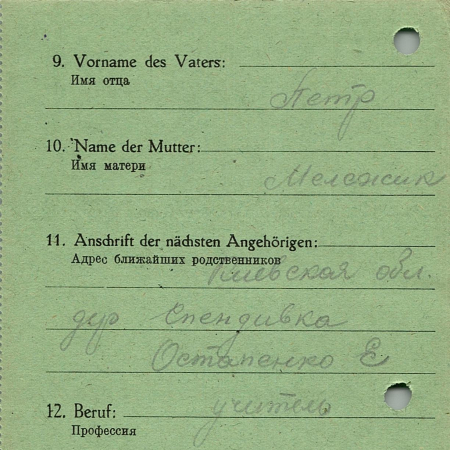 9. Vorname des Vaters:
Имя отца
Петр
10. Name der Mutter:
Имя матери
Мележик
11. Anschrift der nächsten Angehörigen:
Адрес ближайших родственников
Киевская обл.
дер. Спендивка
Остапенко Е
12. Beruf:
учитель
Профессия